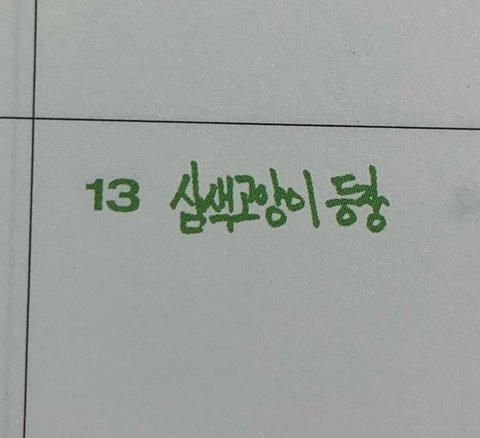 13 삼색고양이 등장